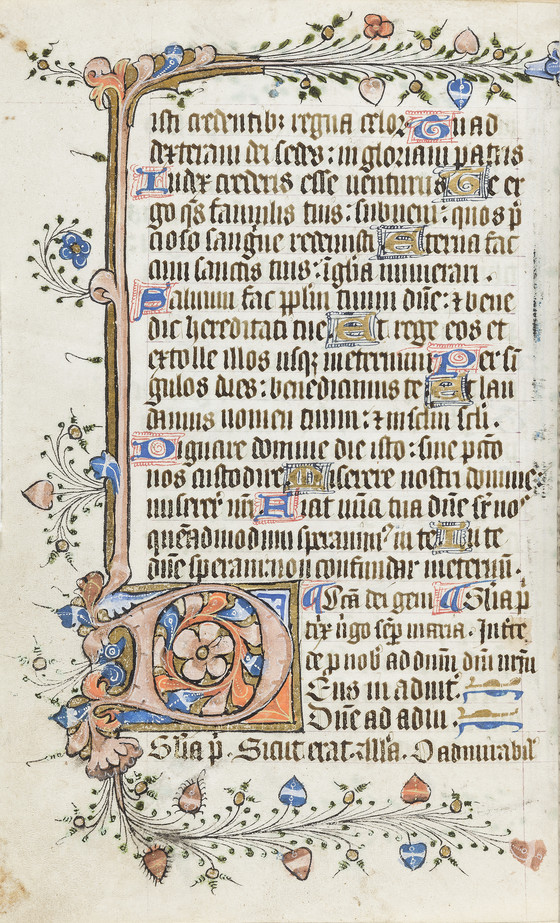 isti credentib; regna celor̄ Tu ad
dexteram dei sedes : in gloriam patris
Iudex crederis esse venturus Te er
go q̄s famulis tuis : subveni : quos p̄
cioso sangūe redemisti Eterna fac
cum sanctis tuis : ī gl̄ia numerari .
Saluum fac pp̄l̄m tuum dn̄e : ⁊ bene
dic hereditati tue Et rege eos et
extolle illos usq; in eternum Per sī
gulos dies : benedicimus te Et lau
damus nomen tuum : ⁊ in sc̄lm sc̄li .
Dignare domine die isto : sine pc̄c̄o
nos custodire Miserere nostri domine
miserer̄ nr̄i Fiat mīa tua dn̄e sr̄ nos
quēadmodum speravim⁹ in te In te
dn̄e speravi non confundar in eternum .
Sc̄a dei geni Gl̄ia p̄
trix v̄go sēp maria . Inter̄
cede p nob̄ ad dn̄m dm̄ nr̄m
Deus in adiut̄ .
Dn̄e ad adiu .
Gl̄ia p̄ . Sicut erat . All̄a . O admirabil̄